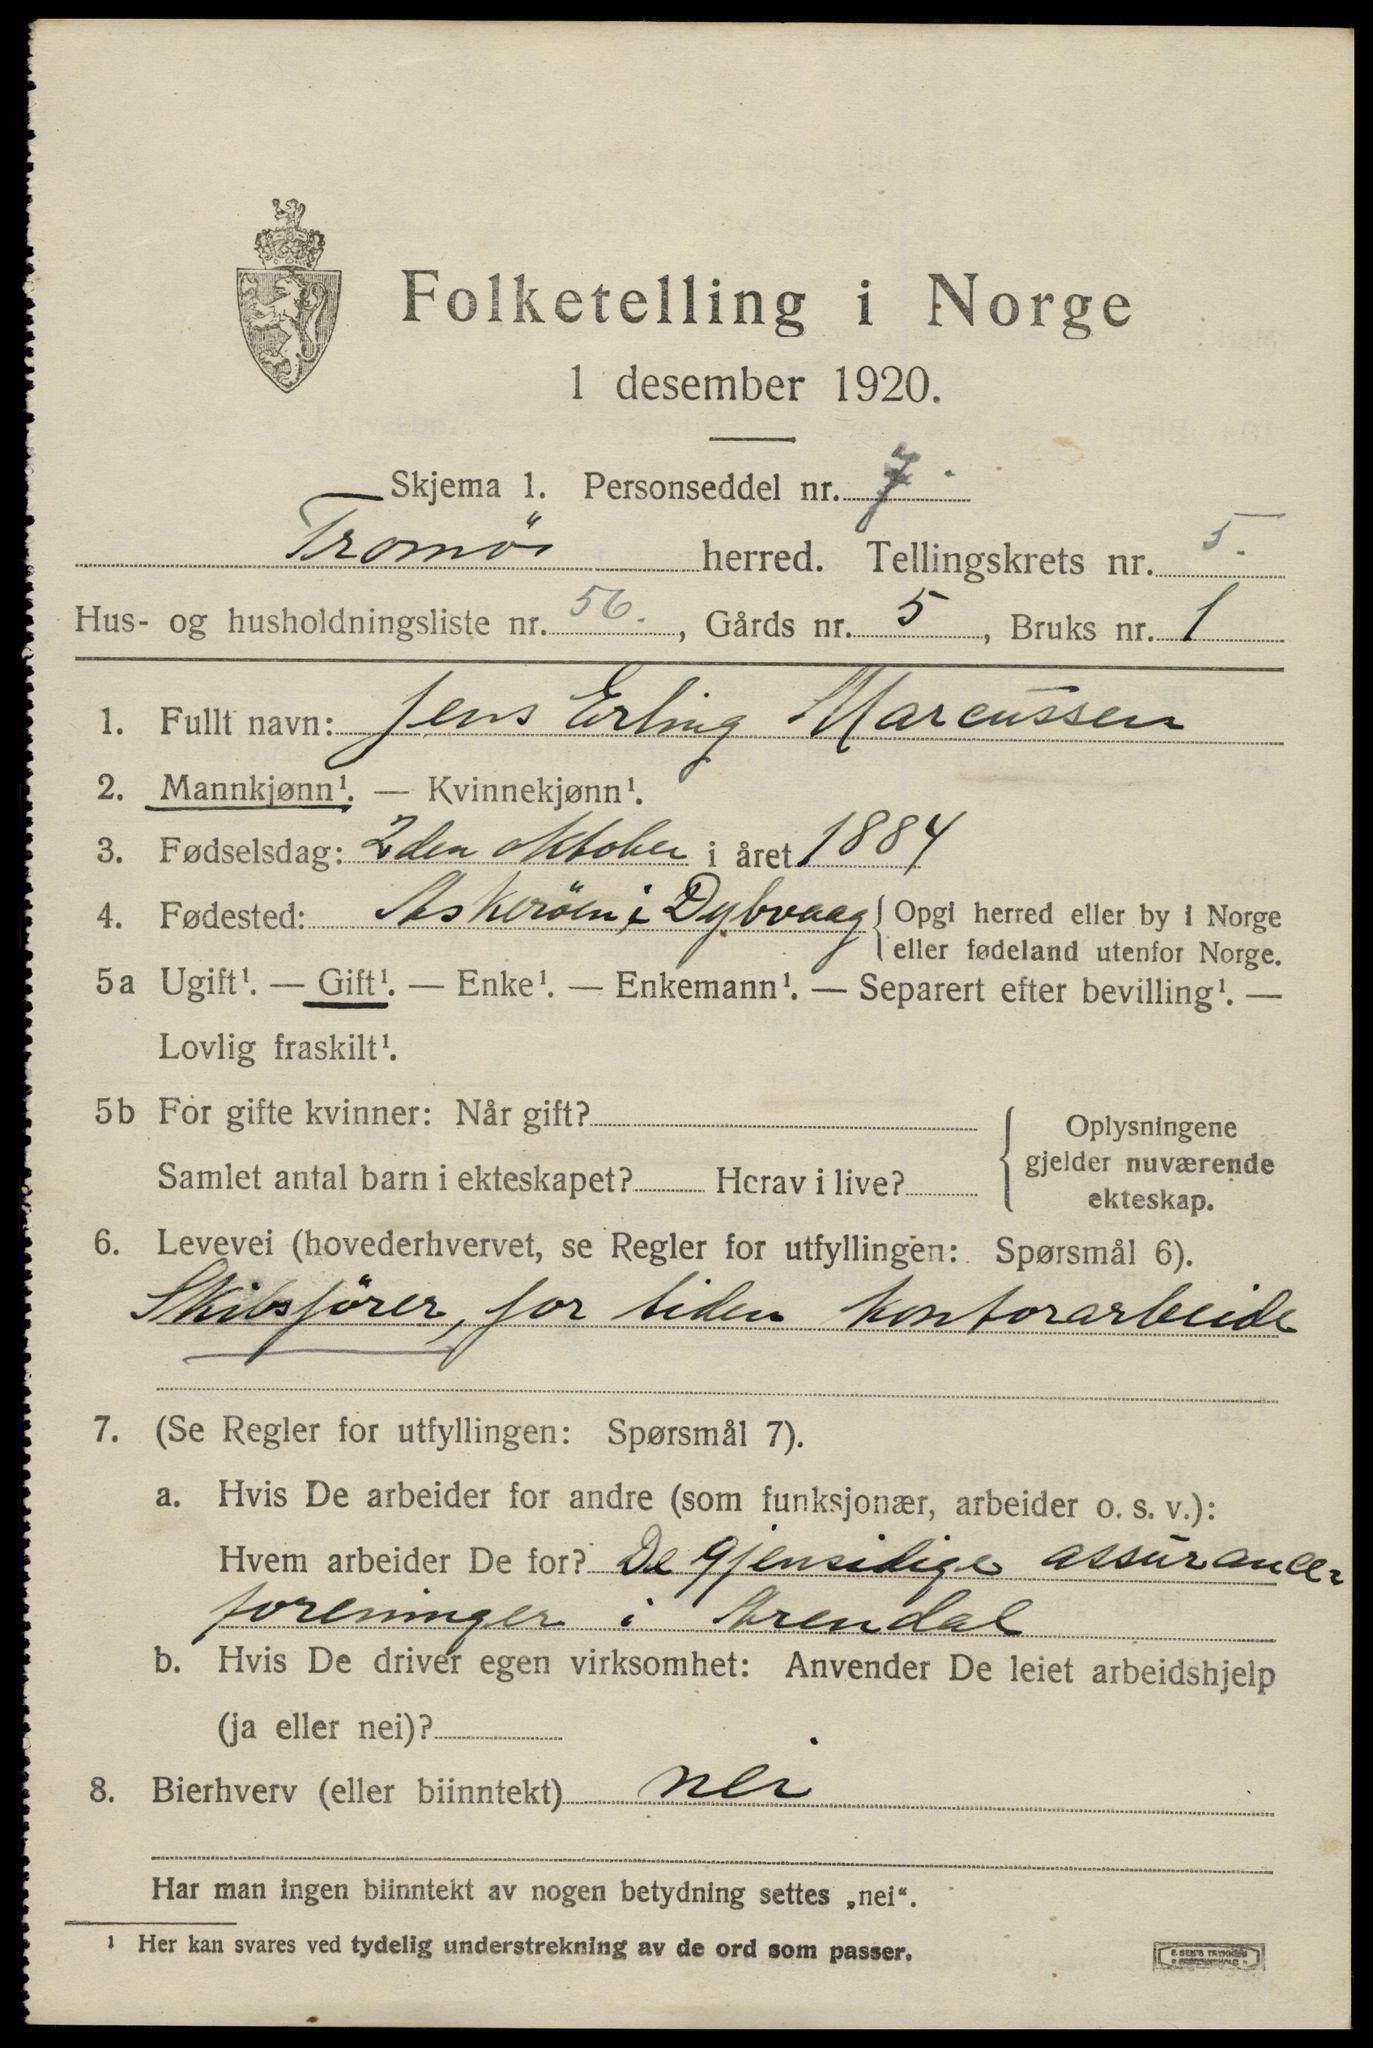 Folketelling i Norge
1 desember 1920.
Skjema 1. Personseddel nr. 7.
Tromöi herred. Tellingskrets nr. 5.
Hus- og husholdningsliste nr. 56., Gårds nr. 5, Bruks nr. 1
1. Fullt navn: Jens Erling Marcussen
2. Mannkjønn¹. — Kvinnekjønn¹.
3. Fødselsdag: 2den oktober i året 1884
4. Fødested: Askerøen i Dybvaag {Opgi herred eller by i Norge
eller fødeland utenfor Norge.
5a Ugift¹. — Gift¹. — Enke¹. — Enkemann¹. — Separert efter bevilling¹. —
Lovlig fraskilt¹.
5b For gifte kvinner: Når gift?
Samlet antal barn i ekteskapet? Herav i live?
Oplysningene
gjelder nuværende
ekteskap.
6. Levevei (hovederhvervet, se Regler for utfyllingen: Spørsmål 6).
Skibsförer, for tiden kontorarbeide
7. (Se Regler for utfyllingen: Spørsmål 7).
a. Hvis De arbeider for andre (som funksjonær, arbeider o. s. v.):
Hvem arbeider De for? De gjensidige assurance-
foreninger i Arendal
b. Hvis De driver egen virksomhet: Anvender De leiet arbeidshjelp
(ja eller nei)?
8. Bierhverv (eller biinntekt) nei
Har man ingen biinntekt av nogen betydning settes „nei“.
¹ Her kan svares ved tydelig understrekning av de ord som passer.